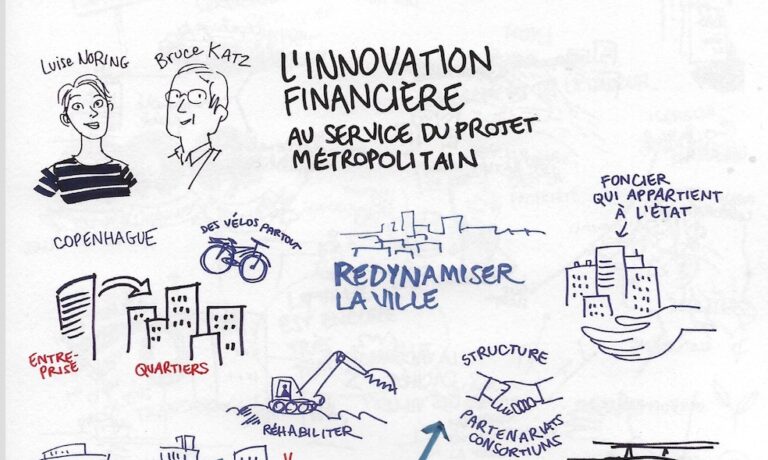 Luise NORING
Bruce KATZ
L'INNOVATION
FINANCIÈRE
AU SERVICE DU PROJET
MÉTROPOLITAIN
FONCIER
QUI APPARTIENT
À L'ÉTAT
COPENHAGUE
DES VÉLOS PARTOUT
REDYNAMISER
LA VILLE
ENTRE-
PRISE
QUARTIERS
STRUCTURE
RÉHABILITER
PARTENARIATS
CONSORTIUMS